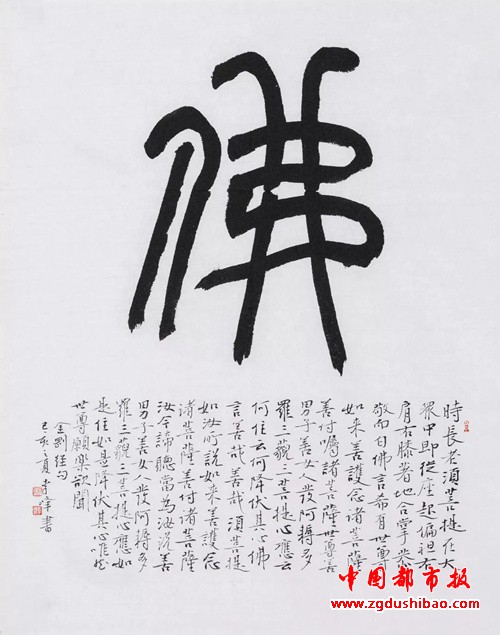 佛
時長老須菩提在大
眾中即從座起偏袒右
肩右膝著地合掌恭
敬而白佛言希有世尊
如来善護念諸菩薩
善付囑諸菩薩世尊善
男子善女人發阿耨多
羅三藐三菩提心應云
何住云何降伏其心佛
言善哉善哉須菩提
如汝所说如来善護念
諸菩薩善付諸菩薩
汝今諦聽當為汝说善
男子善女人發阿耨多
羅三藐三菩提心應如
是住如是降伏其心唯然
世尊願樂欲聞
金剛經句
己亥夏李書
中国都市报
www.zgdushibao.com